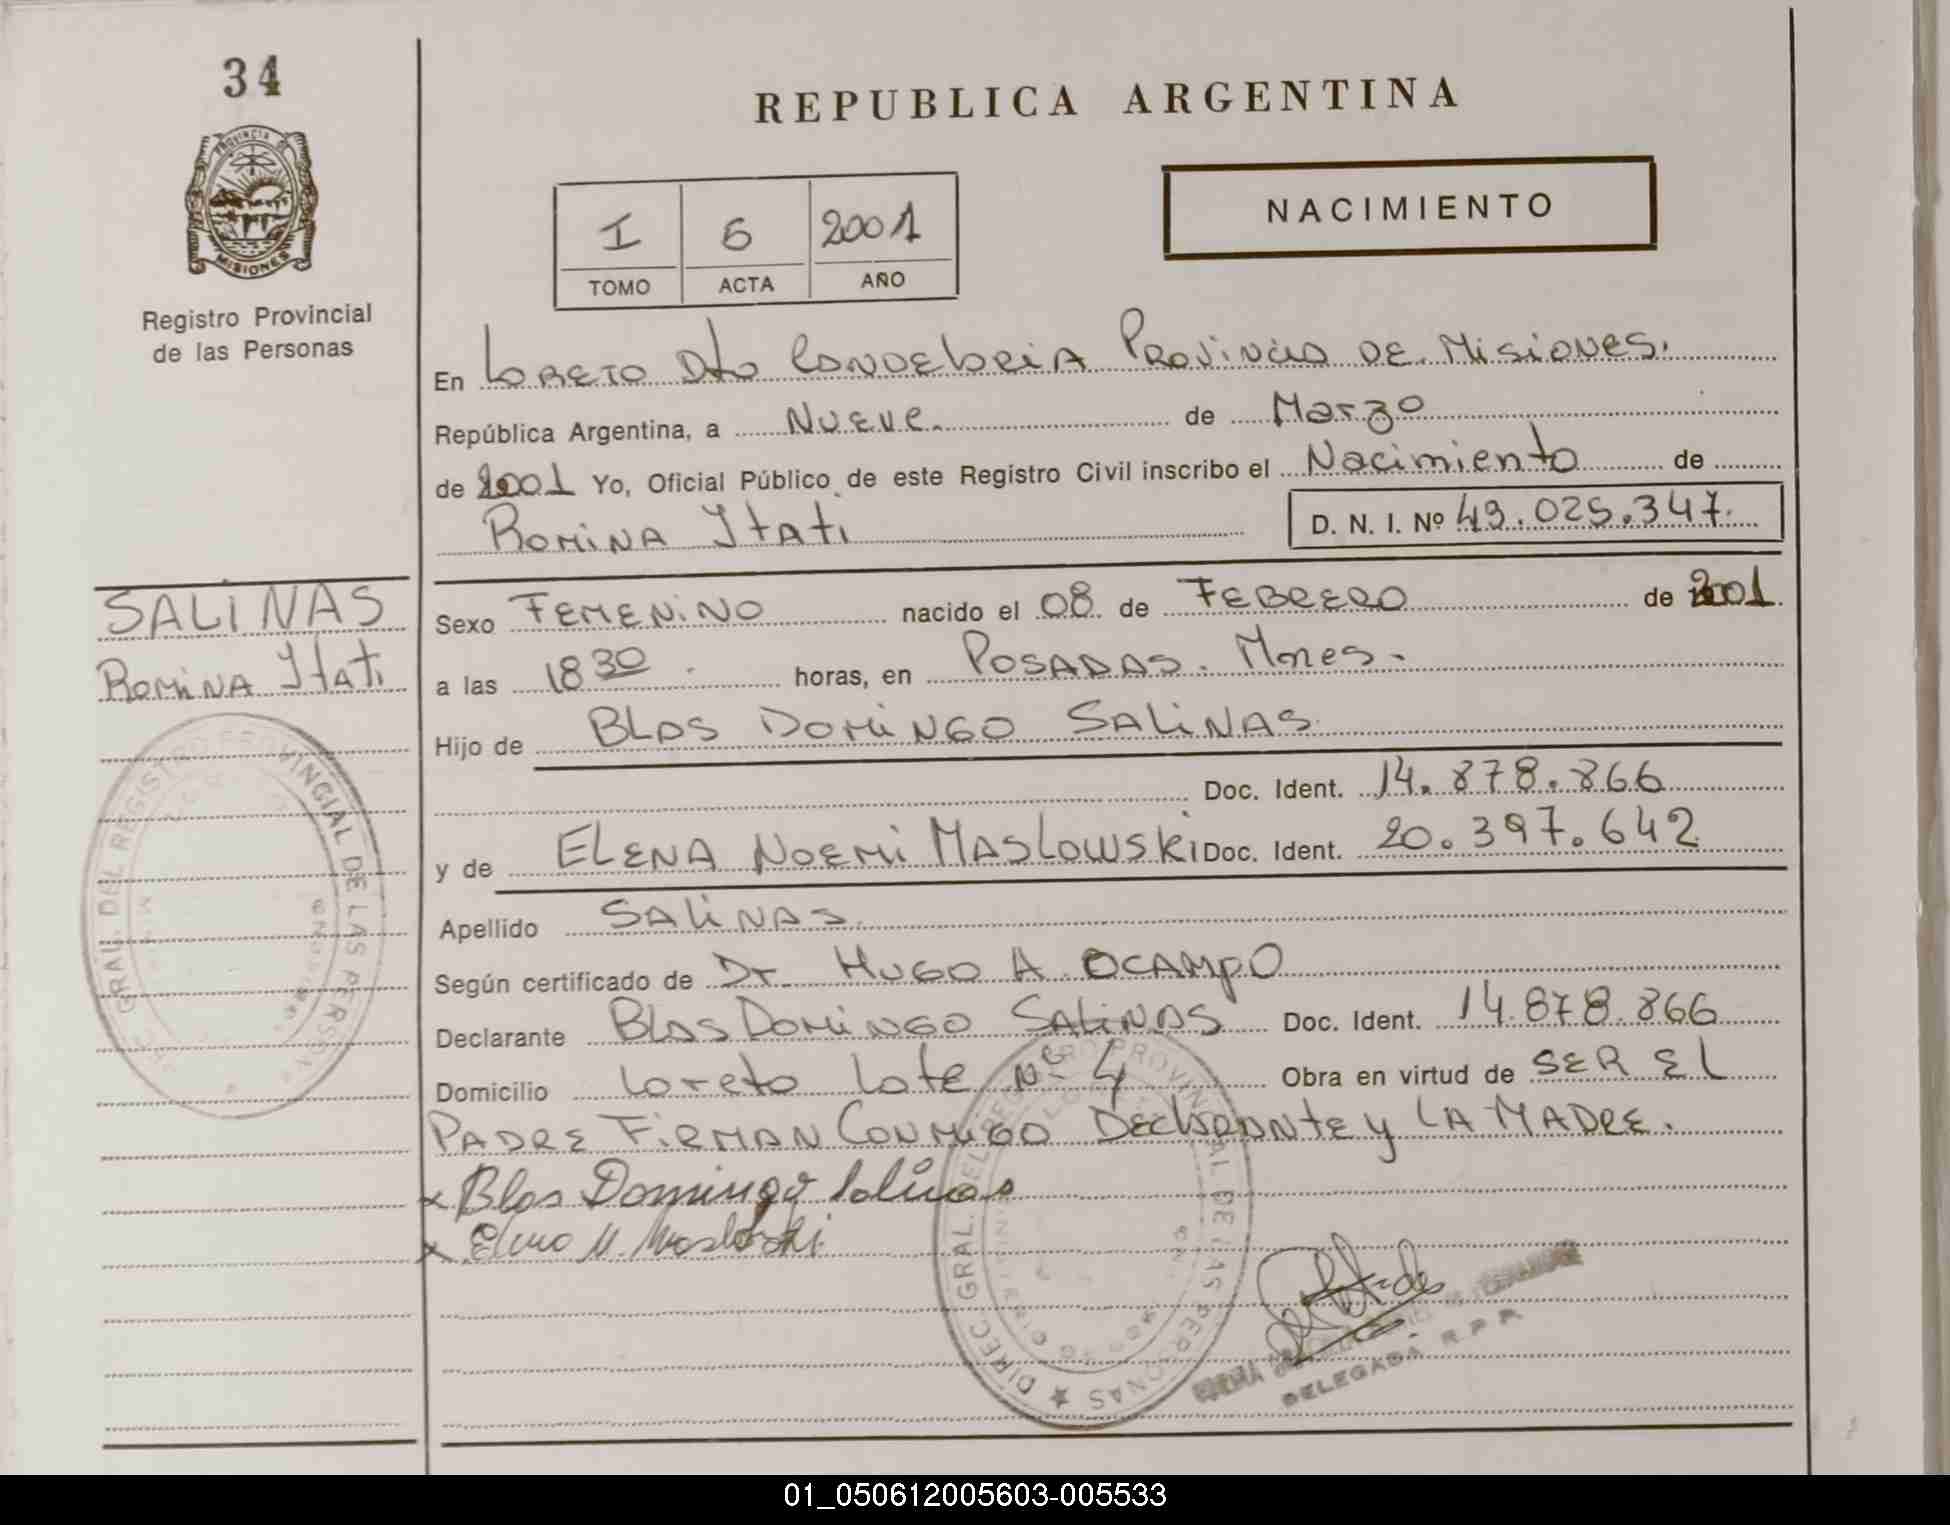 34
REPUBLICA ARGENTINA
PROVINCIA DE
MISIONES
Registro Provincial
de las Personas
I 6 2001
TOMO ACTA AÑO
NACIMIENTO
En Loreto Dto Candelaria Provincia de Misiones.
República Argentina, a Nueve. de Marzo
de 2001 Yo, Oficial Público de este Registro Civil inscribo el Nacimiento de
Romina Itati D. N. I. Nº 43.025.347.
SALINAS
Romina Itati
Sexo FEMENINO nacido el 08 de FEBRERO de 2001.
a las 18 30 horas, en POSADAS. Mnes.
Hijo de BLAS DOMINGO SALINAS
Doc. Ident. 14.878.866
y de ELENA NOEMI MASLOWSKI Doc. Ident. 20.397.642
Apellido SALINAS.
Según certificado de Dr HUGO A OCAMPO
Declarante BLAS DOMINGO SALINAS Doc. Ident. 14.878.866
Domicilio Loreto Lote Nº 4 Obra en virtud de SER EL
PADRE FIRMAN CONMIGO DECLARANTE y LA MADRE.
x Blas Domingo Salinas
x Elena N. Maslowski
DIREC. GRAL. DEL REGISTRO PROVINCIAL DE LAS PERSONAS
DELEGADA R.P.P.
01_050612005603-005533